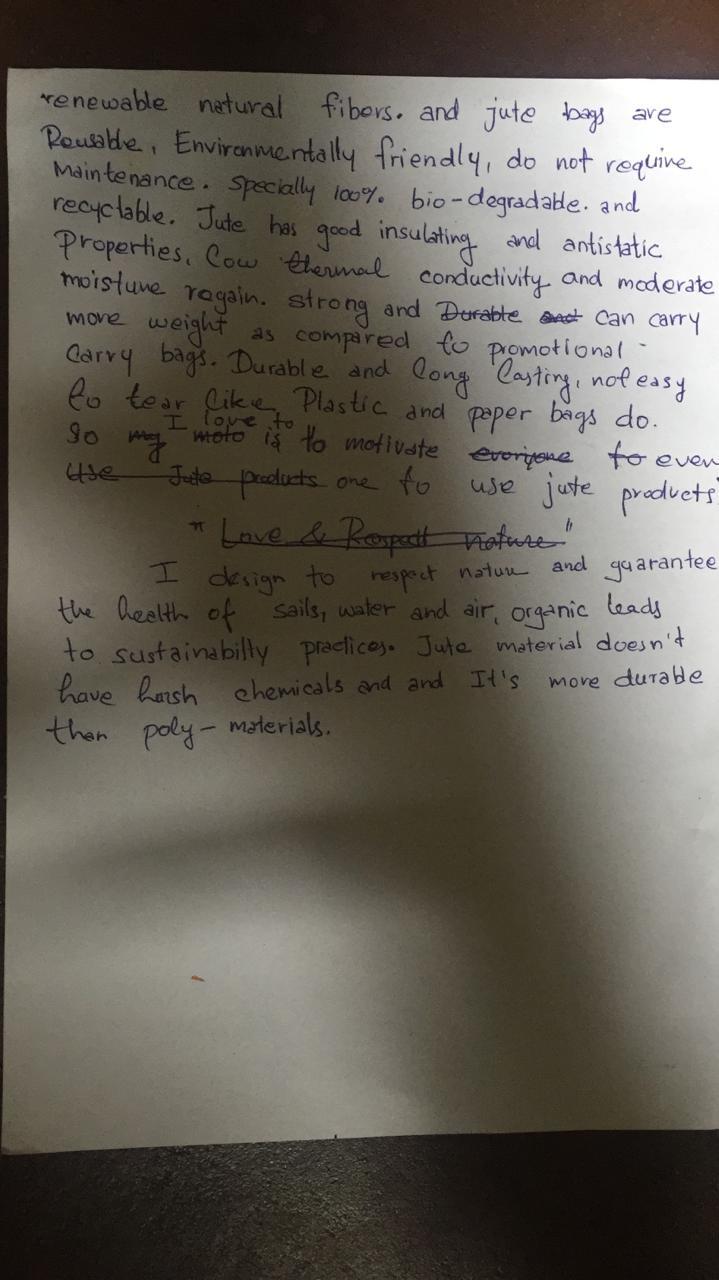 renewable natural fibers. and jute bags are
Reusable, Environmentally friendly, do not require
Maintenance. Specially 100% bio-degradable. and
recyctable. Jute has good insulating and antistatic
Properties, Low thermal conductivity and moderate
moisture regain. strong and Durable and can carry
more weight as compared to promotional
Carry bags. Durable and long lasting, not easy
to tear like Plastic and paper bags do.
I love to
So my moto is to motivate everyone to every
Use Jute products one to use jute products
"Love & Respect nature"
I design to respect nature and guarantee
the health of sails, water and air, organic leads
to sustainabilty practices. Jute material doesn't
have harsh chemicals and and It's more durable
than poly-materials.